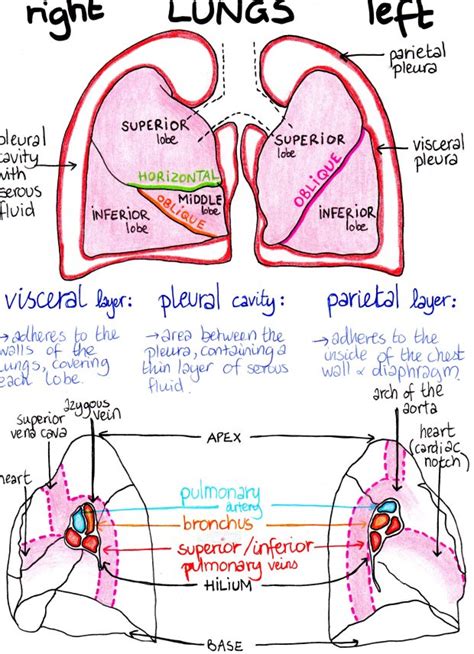 right LUNGS left
parietal
pleura
SUPERIOR
lobe
SUPERIOR
lobe
pleural
cavity
with
serous
fluid
visceral
pleura
HORIZONTAL
OBLIQUE
MIDDLE
lobe
OBLIQUE
INFERIOR
lobe
INFERIOR
lobe
visceral layer:
→adheres to the
walls of the
lungs, covering
each lobe.
pleural cavity:
→area between the
pleura, containing a
thin layer of serous
fluid.
parietal layer:
→adheres to the
inside of the chest
wall & diaphragm.
azygous
vein
superior
vena cava
heart
APEX
arch of the
aorta
heart
(cardiac
notch)
pulmonary
artery
bronchus
superior/inferior
pulmonary veins
HILIUM
BASE